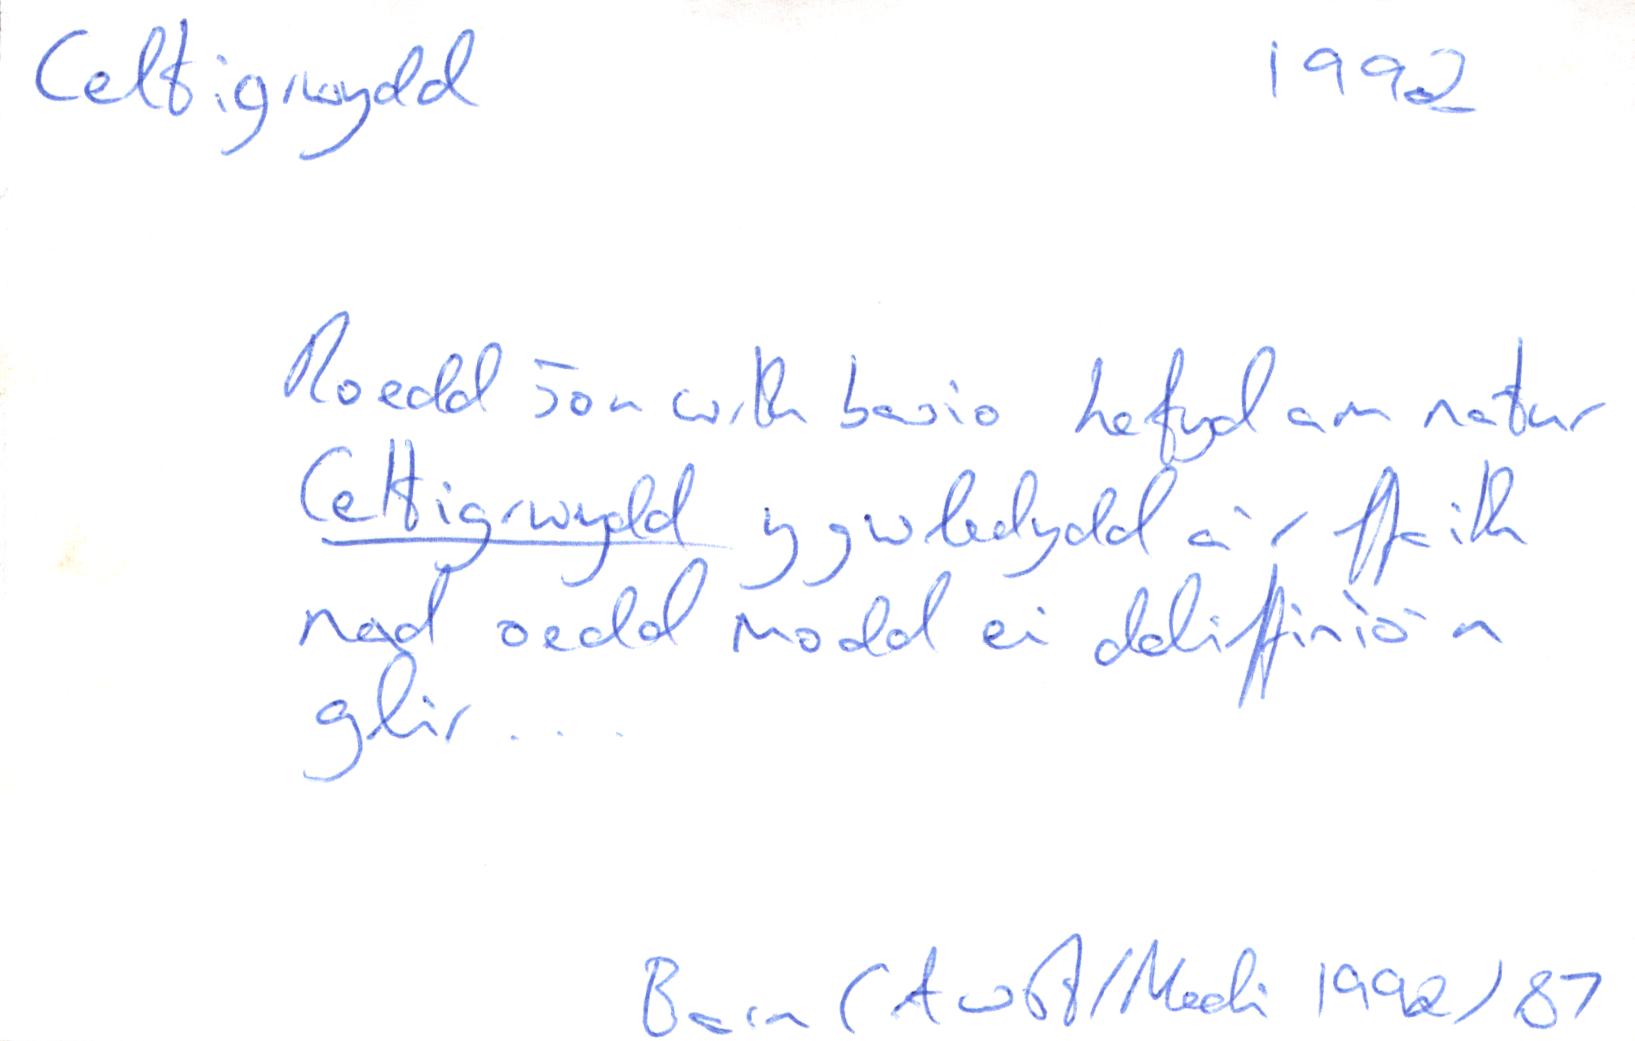 Celtigrwydd 1992
Roedd sôn wrth basio hefyd am natur
Celtigrwydd y gwledydd a'r ffaith
nad oedd modd ei ddiffinio'n
glir....
Barn (Awst/Medi 1992) 87